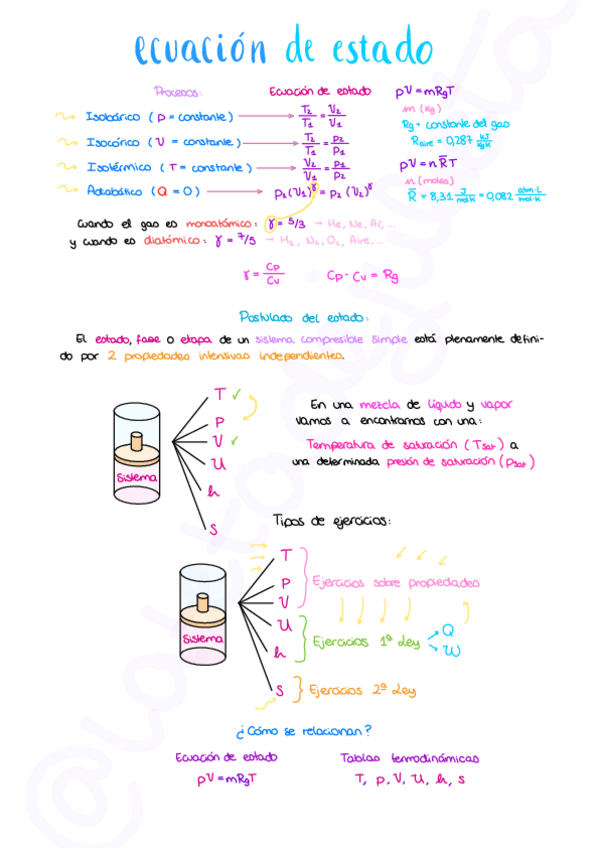 ecuación de estado
Procesos: Ecuación de estado pV=mRgT
Isobárico (P = constante) → T₂/T₁ = V₂/V₁ m (kg)
Rg → constante del gas
Isocórico (V = constante) → T₂/T₁ = P₂/P₁ Raire = 0,287 kJ/kgK
Isotérmico (T = constante) → V₂/V₁ = P₁/P₂ pV = nR̅T
n (moles)
Adiabático (Q = 0) → P₁(V₁)^γ = P₂(V₂)^γ R̅ = 8,31 J/mol·K = 0,082 atm·L/mol·K
Cuando el gas es monoatómico: γ = 5/3 → He, Ne, Ar, ...
y cuando es diatómico: γ = 7/5 → H₂, N₂, O₂, Aire, ...
γ = Cp/Cv Cp - Cv = Rg
Postulado del estado:
El estado, fase o etapa de un sistema compresible simple está plenamente defini-
do por 2 propiedades intensivas independientes.
Sistema
T ✓
P
V ✓
U
h
s
En una mezcla de líquido y vapor
vamos a encontrarnos con una:
Temperatura de saturación (Tsat) a
una determinada presión de saturación (Psat)
Tipos de ejercicios:
Sistema
T
P
V
U
h
s
Ejercicios sobre propiedades
Ejercicios 1ª Ley
Q
W
Ejercicios 2ª Ley
¿Cómo se relacionan?
Ecuación de estado Tablas termodinámicas
pV=mRgT T, p, V, U, h, s